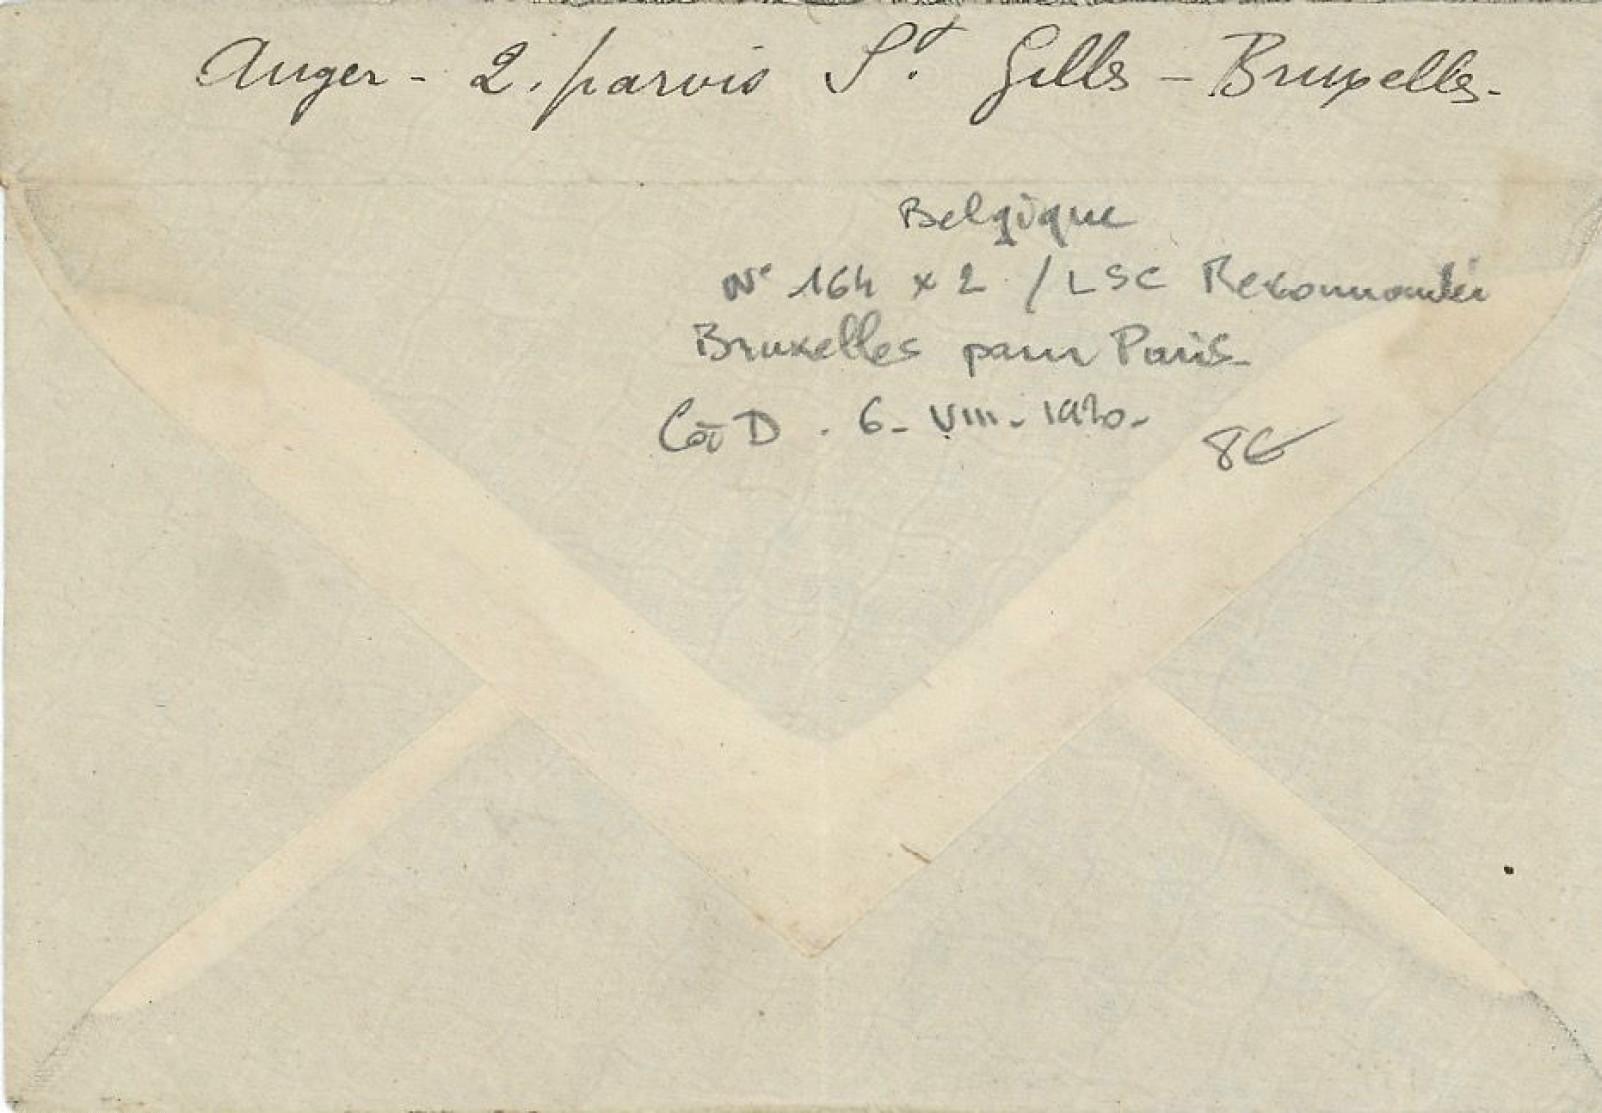 Auger - 2. parvis St Gilles - Bruxelles.
Belgique
N° 164 x 2 / LSC Recommandée
Bruxelles pour Paris
CàD. 6 - VIII - 1920 -
8€